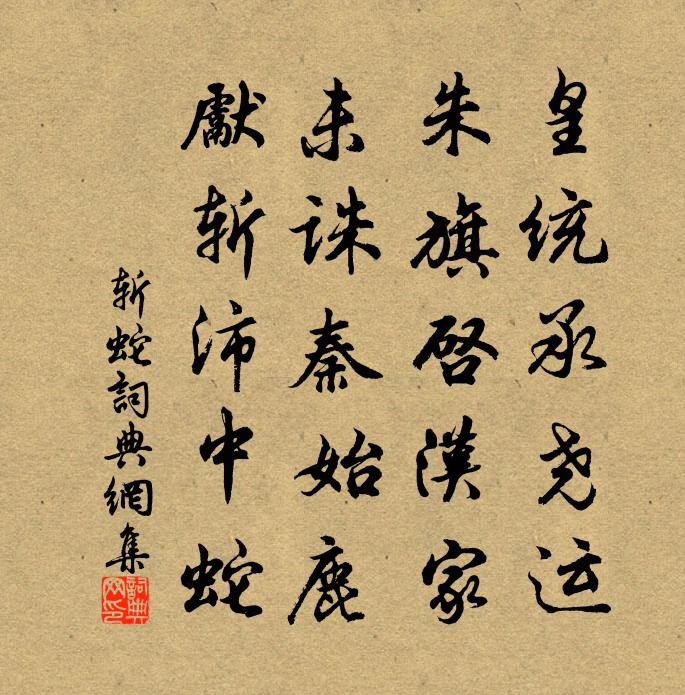 皇统承尧运
朱旗启漢家
未诛秦始鹿
獻斩沛中蛇
斩蛇詞典網集
詞典网印